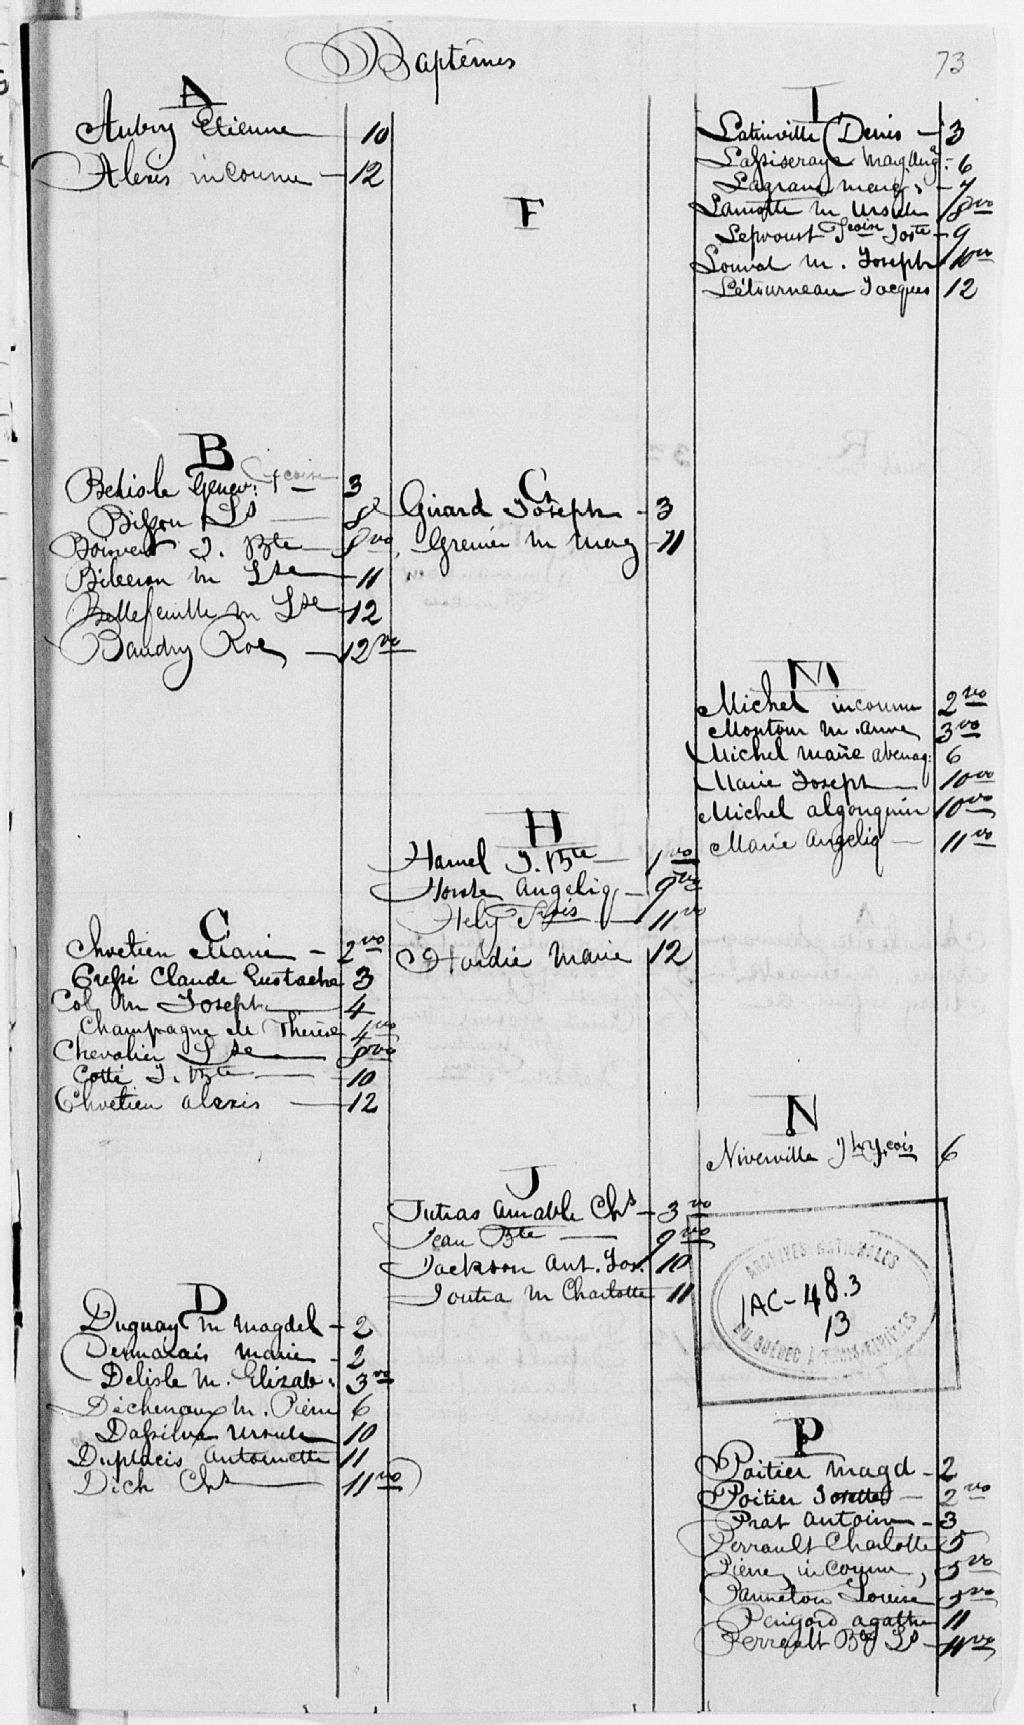 Baptêmes
73
A
Aubry Etienne 10
Alexis inconnu 12
B
Belisle Genev: fcoise 3
Bisson Ls 8
Boisvert J. Bte 8vo
Bileron M Lse 11
Bellefeuille M Lse 12
Baudry Roe 12vo
C
Chretien Marie 2vo
Cressé Claude Eustache 3
Col M Joseph 4
Champagne M Therèse 4vo
Chevalier Lse 8vo
Cotté J. Bte 10
Chretien alexis 12
D
Duguay M Magdel 2
Desmarais Marie 2
Delisle M. Elizab: 3vo
Dechenaux M. Pierre 6
Dassilva Ursule 10
Duplacis Antoinette 11
Dich Chs 11vo
F
G
Girard Joseph 3
Grenier M Marg 11
H
Hamel J. Bte 1vo
Angeliq 9vo
Hely Frçois 11vo
Hardié Marie 12
J
Jutras Amable Chs 3vo
Jean Bte 9vo
Jackson Ant. Jos. 10
Joutra M Charlotte 11
L
Latinville Denis 3
Mag. Ang: 6
Marg. 7
Lamotte M Ursule 8vo
Leproust Fcoise Joste 9
M. Joseph 10vo
Létourneau Jacques 12
M
Michel inconnu 2vo
Montour M. Anne 3vo
Michel Marie abenaq: 6
Marie Joseph 10vo
Michel algonquin 10vo
Marie Angeliq 11vo
N
Niverville 6
ARCHIVES NATIONALES
1AC-48.3
13
DU QUÉBEC À TROIS-RIVIÈRES
P
Poitier Magd 2
Poitier Josette 2vo
Prat Antoine 3
Perrault Charlotte 5
Pierre, inconnu, 5vo
Panneton Louise 5vo
Perigord agathe 11
Perreault Bte Ls 11vo